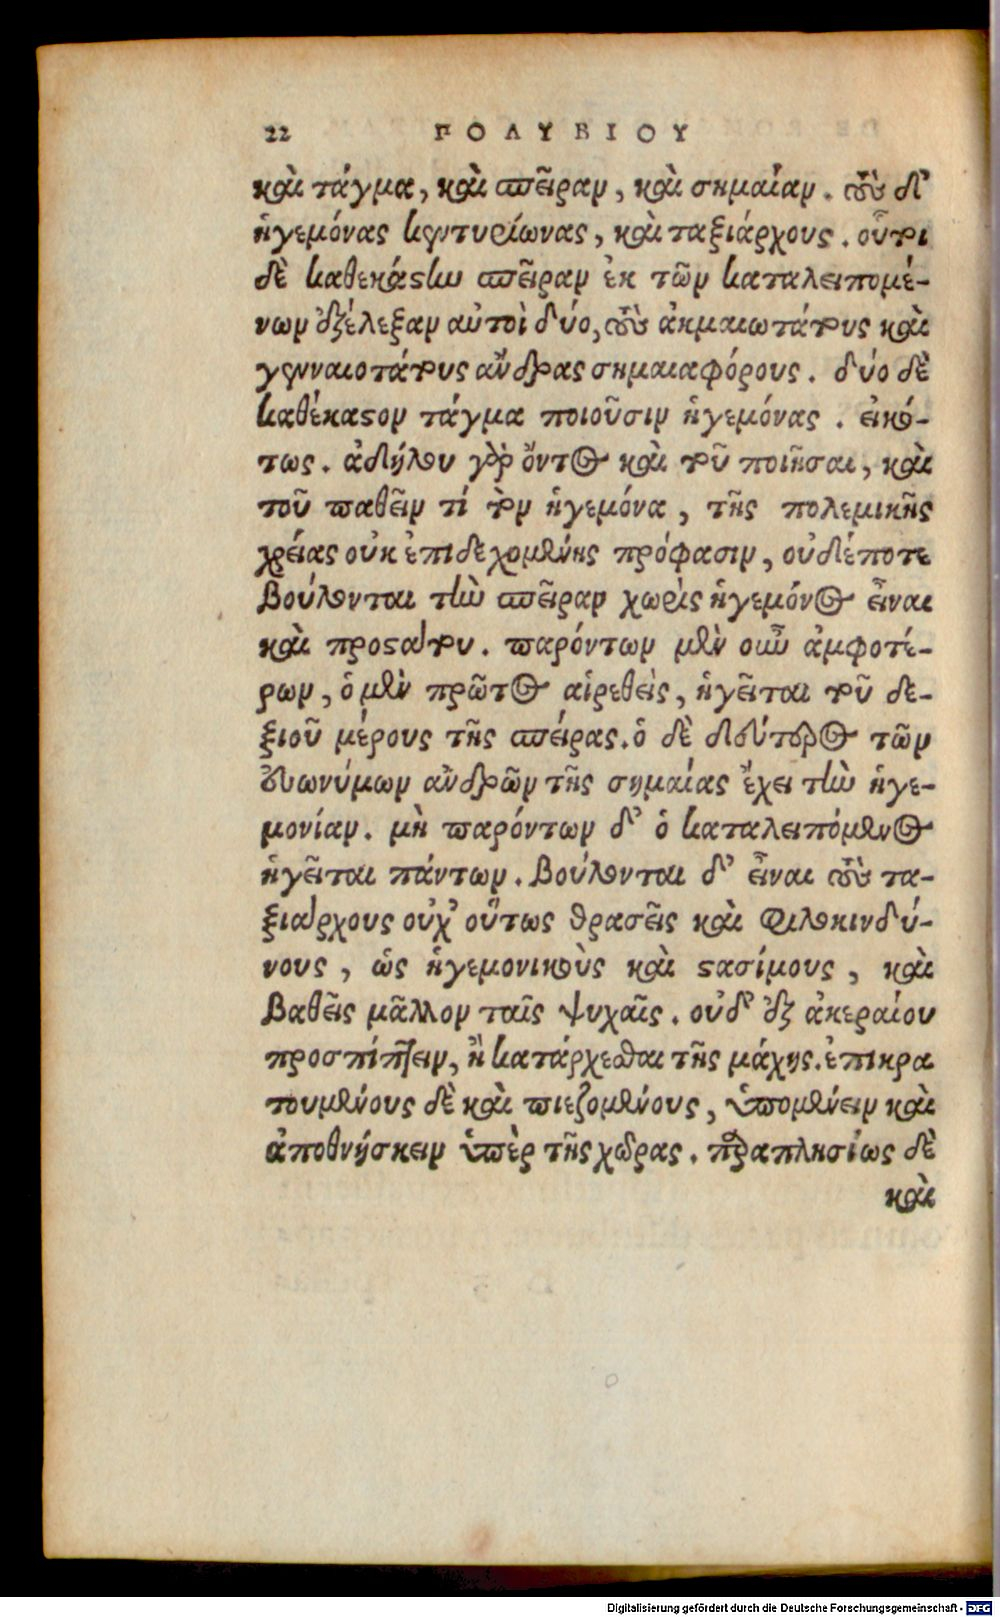 22 ΠΟΛΥΒΙΟΥ
καὶ τάγμα, καὶ σπεῖραν, καὶ σημαίαν. τοὺς δ᾽
ἡγεμόνας κεντυρίωνας, καὶ ταξιάρχους. οὗτοι
δὲ καθεκάστην σπεῖραν ἐκ τῶν καταλειπομέ-
νων ἐξέλεξαν αὐτοὶ δύο, τοὺς ἀκμαιωτάτους καὶ
γενναιοτάτους ἄνδρας σημαιαφόρους. δύο δὲ
καθέκαστον τάγμα ποιοῦσιν ἡγεμόνας. εἰκό-
τως. ἀδήλου γὰρ ὄντος καὶ τοῦ ποιῆσαι, καὶ
τοῦ παθεῖν τί τὸν ἡγεμόνα, τῆς πολεμικῆς
χρείας οὐκ ἐπιδεχομένης πρόφασιν, οὐδέποτε
βούλονται τὴν σπεῖραν χωρὶς ἡγεμόνος εἶναι
καὶ προστάτου. παρόντων μὲν οὖν ἀμφοτέ-
ρων, ὁ μὲν πρῶτος αἱρεθεὶς, ἡγεῖται τοῦ δε-
ξιοῦ μέρους τῆς σπείρας. ὁ δὲ δεύτερος τῶν
εὐωνύμων ἀνδρῶν τῆς σημαίας ἔχει τὴν ἡγε-
μονίαν. μὴ παρόντων δ᾽ ὁ καταλειπόμενος
ἡγεῖται πάντων. βούλονται δ᾽ εἶναι τοὺς τα-
ξιάρχους οὐχ᾽ οὕτως θρασεῖς καὶ φιλοκινδύ-
νους, ὡς ἡγεμονικοὺς καὶ στασίμους, καὶ
βαθεῖς μᾶλλον ταῖς ψυχαῖς. οὐδ᾽ ἐξ ἀκεραίου
προσπίπτειν, ἢ κατάρχεσθαι τῆς μάχης. ἐπικρα
τουμένους δὲ καὶ πιεζομένους, ὑπομένειν καὶ
ἀποθνήσκειν ὑπὲρ τῆς χώρας. παραπλησίως δὲ
καὶ
Digitalisierung gefördert durch die Deutsche Forschungsgemeinschaft - DFG